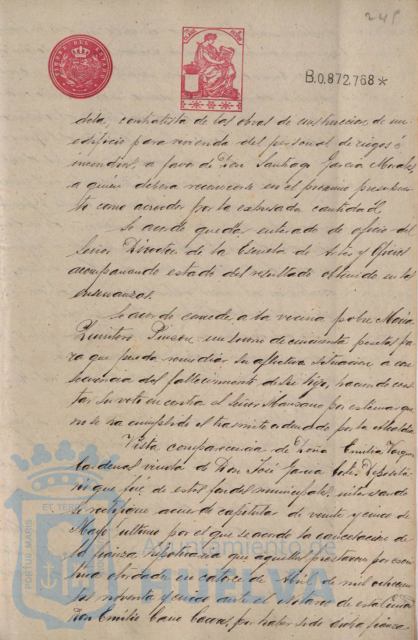 245
B.0.872,768*
dela, contratista de las obras de construccion de un
edificio para vivienda del personal de riegos é
incendios, a favor de Don Santiago Garcia Morales,
a quien debera reconocerse en el proximo presupues-
to como acreedor por la expresada cantidad.
Se acordó quedar enterado de oficio del
Señor Director de la Escuela de Artes y Oficios
acompañando estado del resultado obtenido en la
enseñanza.
Se acordo conceder a la vecina pobre Maria
Quintero Pinzon un socorro de cincuenta pesetas pa-
ra que pueda remediar su aflictiva situacion a con-
secuencia del fallecimiento de su hijo, haciendo cons-
tar su voto en contra el Señor Manzano por estimar que
no se ha cumplido el tramite ordenado por la Alcaldia.
Vista comparecencia de Doña Emilia Vargas
Cardenas viuda de Don José Garcia
que fué de estos fondos municipales, interesando
se rectifique acuerdo capitular de veinte y cinco de
Mayo ultimo por el que se acordo la cancelacion de
la fianza hipotecaria que aquellos prestaron por escri-
tura otorgada en catorce de Abril de mil ochocien-
tos noventa y cinco ante el Notario de esta Ciudad
Don Emilio Cano Caceres, por haber sido dicha fianza
PORTUS MARIS
ET TERRAE
Ayuntamiento de
HUELVA